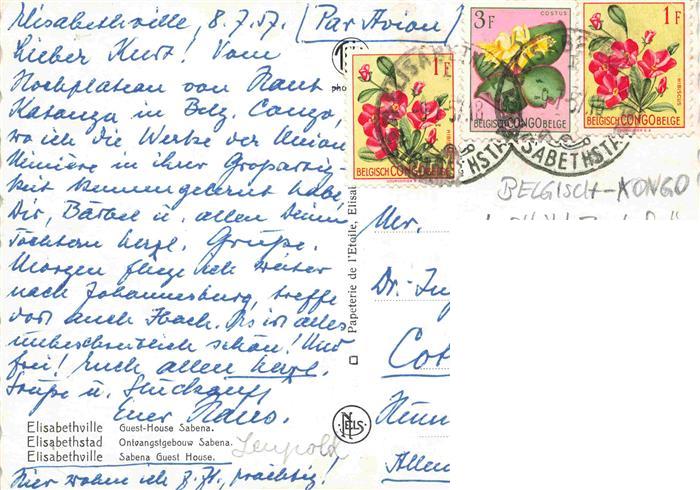 Elisabethville, 8.7.57. (Par Avion)
Lieber Kurt! Vom
Hochplateau von Haut
Katanga in Belg. Congo,
wo ich die Werke der Union
Minière in ihrer Großartig-
keit kennengelernt habe,
Dir, Bärbel u. allen Deinen
Töchtern herzl. Grüße.
Morgen fliege ich weiter
nach Johannesburg, treffe
dort auch Ibach. Es ist alles
unbeschreiblich schön! Und
frei! Euch allen herzl.
Grüße u. Glückauf
Euer Hans.
Leupold
Elisabethville Guest-House Sabena.
Elisabethstad Ontvangstgebouw Sabena.
Elisabethville Sabena Guest House.
Hier wohnen ich z. Zt., prächtig!
NELS
Papeterie de l'Etoile, Elisa
1 F
HIBISCUS
BELGISCH CONGO BELGE
3 F
COSTUS
BELGISCH CONGO BELGE
1 F
HIBISCUS
BELGISCH CONGO BELGE
ELISABETHSTAD
BELGISCH-KONGO
Mr.
Dr.-Ing
Cot
Allem